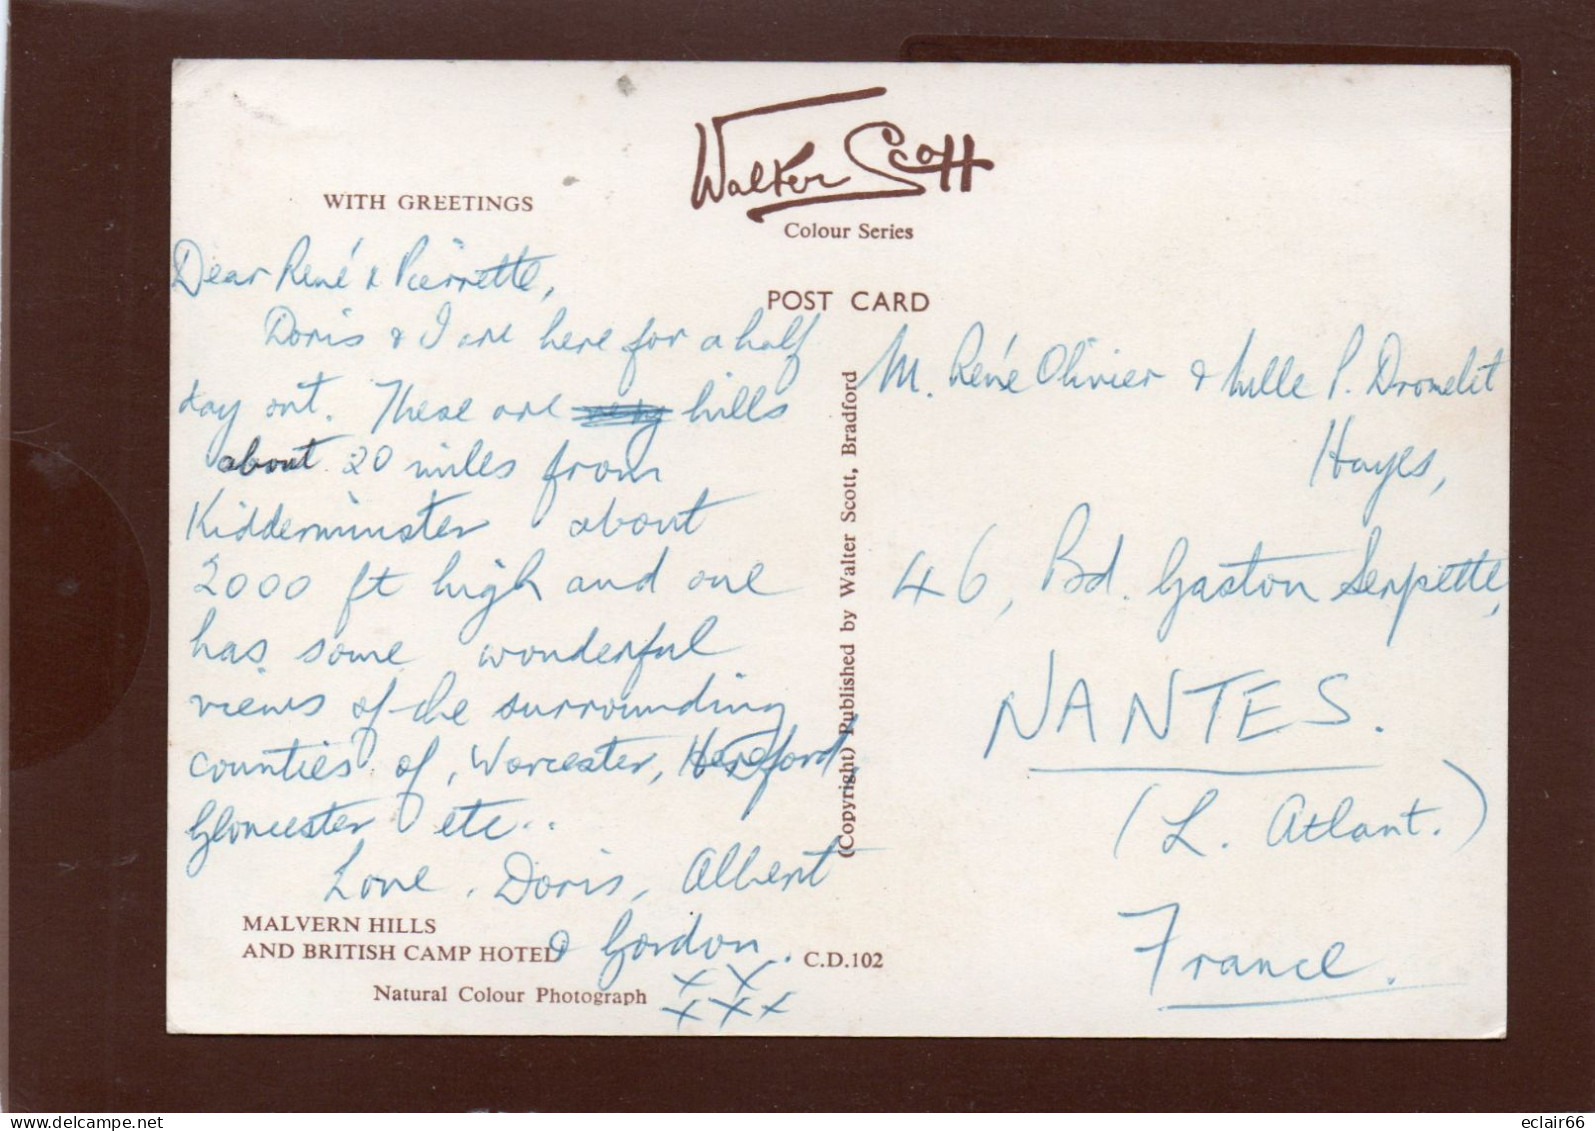 WITH GREETINGS
Walter Scott
Colour Series
POST CARD
Dear René & Pierrette,
Doris & I are here for a half
day out. These are hills
about 20 miles from
Kidderminster about
2000 ft high and one
has some wonderful
views of the surrounding
counties of, Worcester, Hereford,
Gloucester etc..
Love, Doris, Albert
& Gordon.
x x
x x x
MALVERN HILLS
AND BRITISH CAMP HOTEL
C.D.102
Natural Colour Photograph
(Copyright) Published by Walter Scott, Bradford
M. René Olivier & Mlle P. Dromelet
Hayes,
46, Bd. Gaston Serpette,
NANTES.
(L. Atlant.)
France.
eclair66